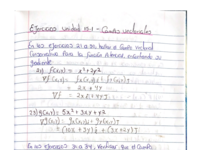 Ejercicios unidad 15.1 - Campos vectoriales
En los ejercicios 21 a 24, halle el campo vectorial
conservativo para la función
gradiente
21) f(x,y) = x² + 2y²
∇f(x,y) = fx(x,y)i + fy(x,y)j
= 2x + 4y
∇f = 2xi + 4yj
23) g(x,y) = 5x² + 3xy + y²
∇g(x,y) = gx(x,y)i + gy(x,y)j
= (10x + 3y)i + (3x + 2y)j
En los ejercicios 31 a 34, verificar que el campo